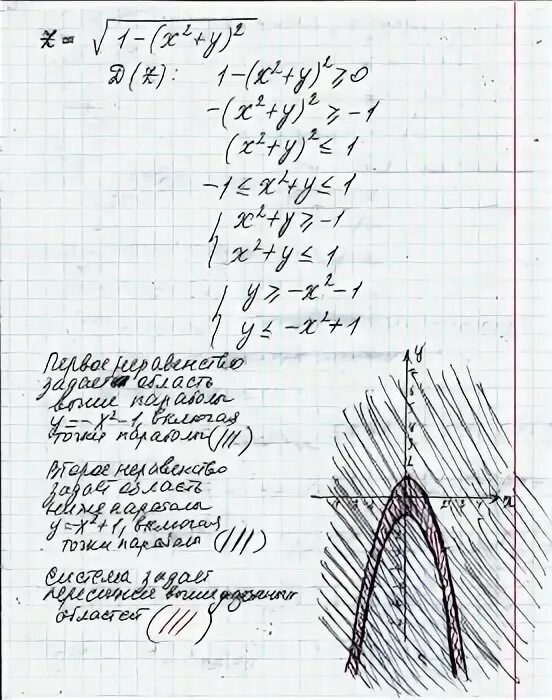 z = √(1-(x²+y)²)
D(z): 1-(x²+y)² ≥ 0
-(x²+y)² ≥ -1
(x²+y)² ≤ 1
-1 ≤ x²+y ≤ 1
{ x²+y ≥ -1
{ x²+y ≤ 1
{ y ≥ -x²-1
{ y ≤ -x²+1
Первое неравенство
задает область
выше параболы
y=-x²-1, включая
точки параболы (///)
Второе неравенство
задаёт область
ниже параболы
y=x²+1, включая
точки параболы (///)
Система задаёт
пересечение
областей (///)
y
x